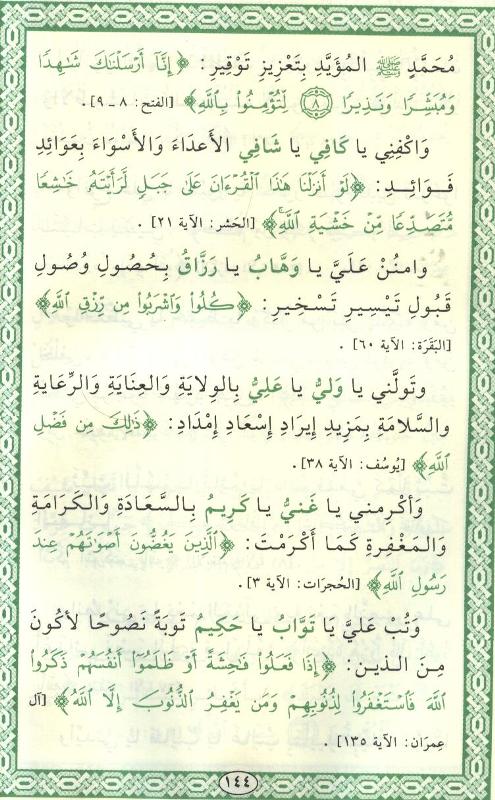 مُحَمَّدٍ ﷺ المُؤَيَّدِ بِتَعْزِيزِ تَوْقِيرِ: ﴿إِنَّآ أَرْسَلْنَٰكَ شَٰهِدًا
وَمُبَشِّرًا وَنَذِيرًا ۝٨ لِّتُؤْمِنُوا۟ بِٱللَّهِ﴾ [الفتح: ٨ ـ ٩].
وَاكْفِنِي يا كَافِي يا شَافِي الأَعدَاءَ وَالأَسْوَاءَ بِعَوَائِدِ
فَوَائِدِ: ﴿لَوْ أَنزَلْنَا هَٰذَا ٱلْقُرْءَانَ عَلَىٰ جَبَلٍ لَّرَأَيْتَهُۥ خَٰشِعًا
مُّتَصَدِّعًا مِّنْ خَشْيَةِ ٱللَّهِ﴾ [الحَشر: الآية ٢١].
وامنُنْ عَلَيَّ يا وَهَّابُ يا رَزَّاقُ بِحُصُولِ وُصُولِ
قَبُولِ تَيْسِيرِ تَسْخِيرِ: ﴿كُلُوا۟ وَٱشْرَبُوا۟ مِن رِّزْقِ ٱللَّهِ﴾
[البَقَرَة: الآية ٦٠].
وتَولَّني يا وَليُّ يا عَلِيُّ بِالوِلايَةِ وَالعِنَايَةِ وَالرِّعَايةِ
والسَّلامَةِ بِمَزِيدِ إيرَادِ إسْعَادِ إمْدَادِ: ﴿ذَٰلِكَ مِن فَضْلِ
ٱللَّهِ﴾ [يُوسُف: الآية ٣٨].
وَأكْرِمني يا غَنيُّ يا كَرِيمُ بِالسَّعَادَةِ وَالكَرَامَةِ
وَالمَغْفِرةِ كَمَا أَكْرَمْتَ: ﴿ٱلَّذِينَ يَغُضُّونَ أَصْوَٰتَهُمْ عِندَ
رَسُولِ ٱللَّهِ﴾ [الحُجرَات: الآية ٣].
وَتُبْ عَليَّ يَا تَوَّابُ يا حَكِيمُ تَوبَةً نَصُوحًا لأكُونَ
مِنَ الذينَ: ﴿إِذَا فَعَلُوا۟ فَٰحِشَةً أَوْ ظَلَمُوٓا۟ أَنفُسَهُمْ ذَكَرُوا۟
ٱللَّهَ فَٱسْتَغْفَرُوا۟ لِذُنُوبِهِمْ وَمَن يَغْفِرُ ٱلذُّنُوبَ إِلَّا ٱللَّهُ﴾ [آل
عِمرَان: الآية ١٣٥].
١٤٤